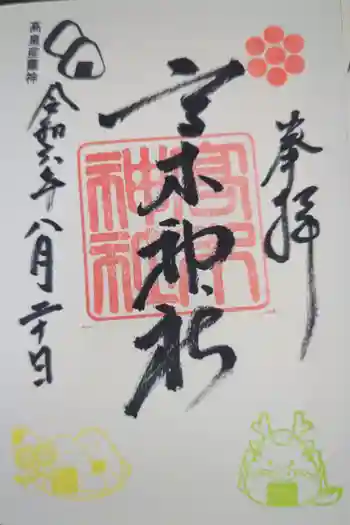 奉拝
高木神社
高木
神社
令和六年八月二十日
高皇産霊神